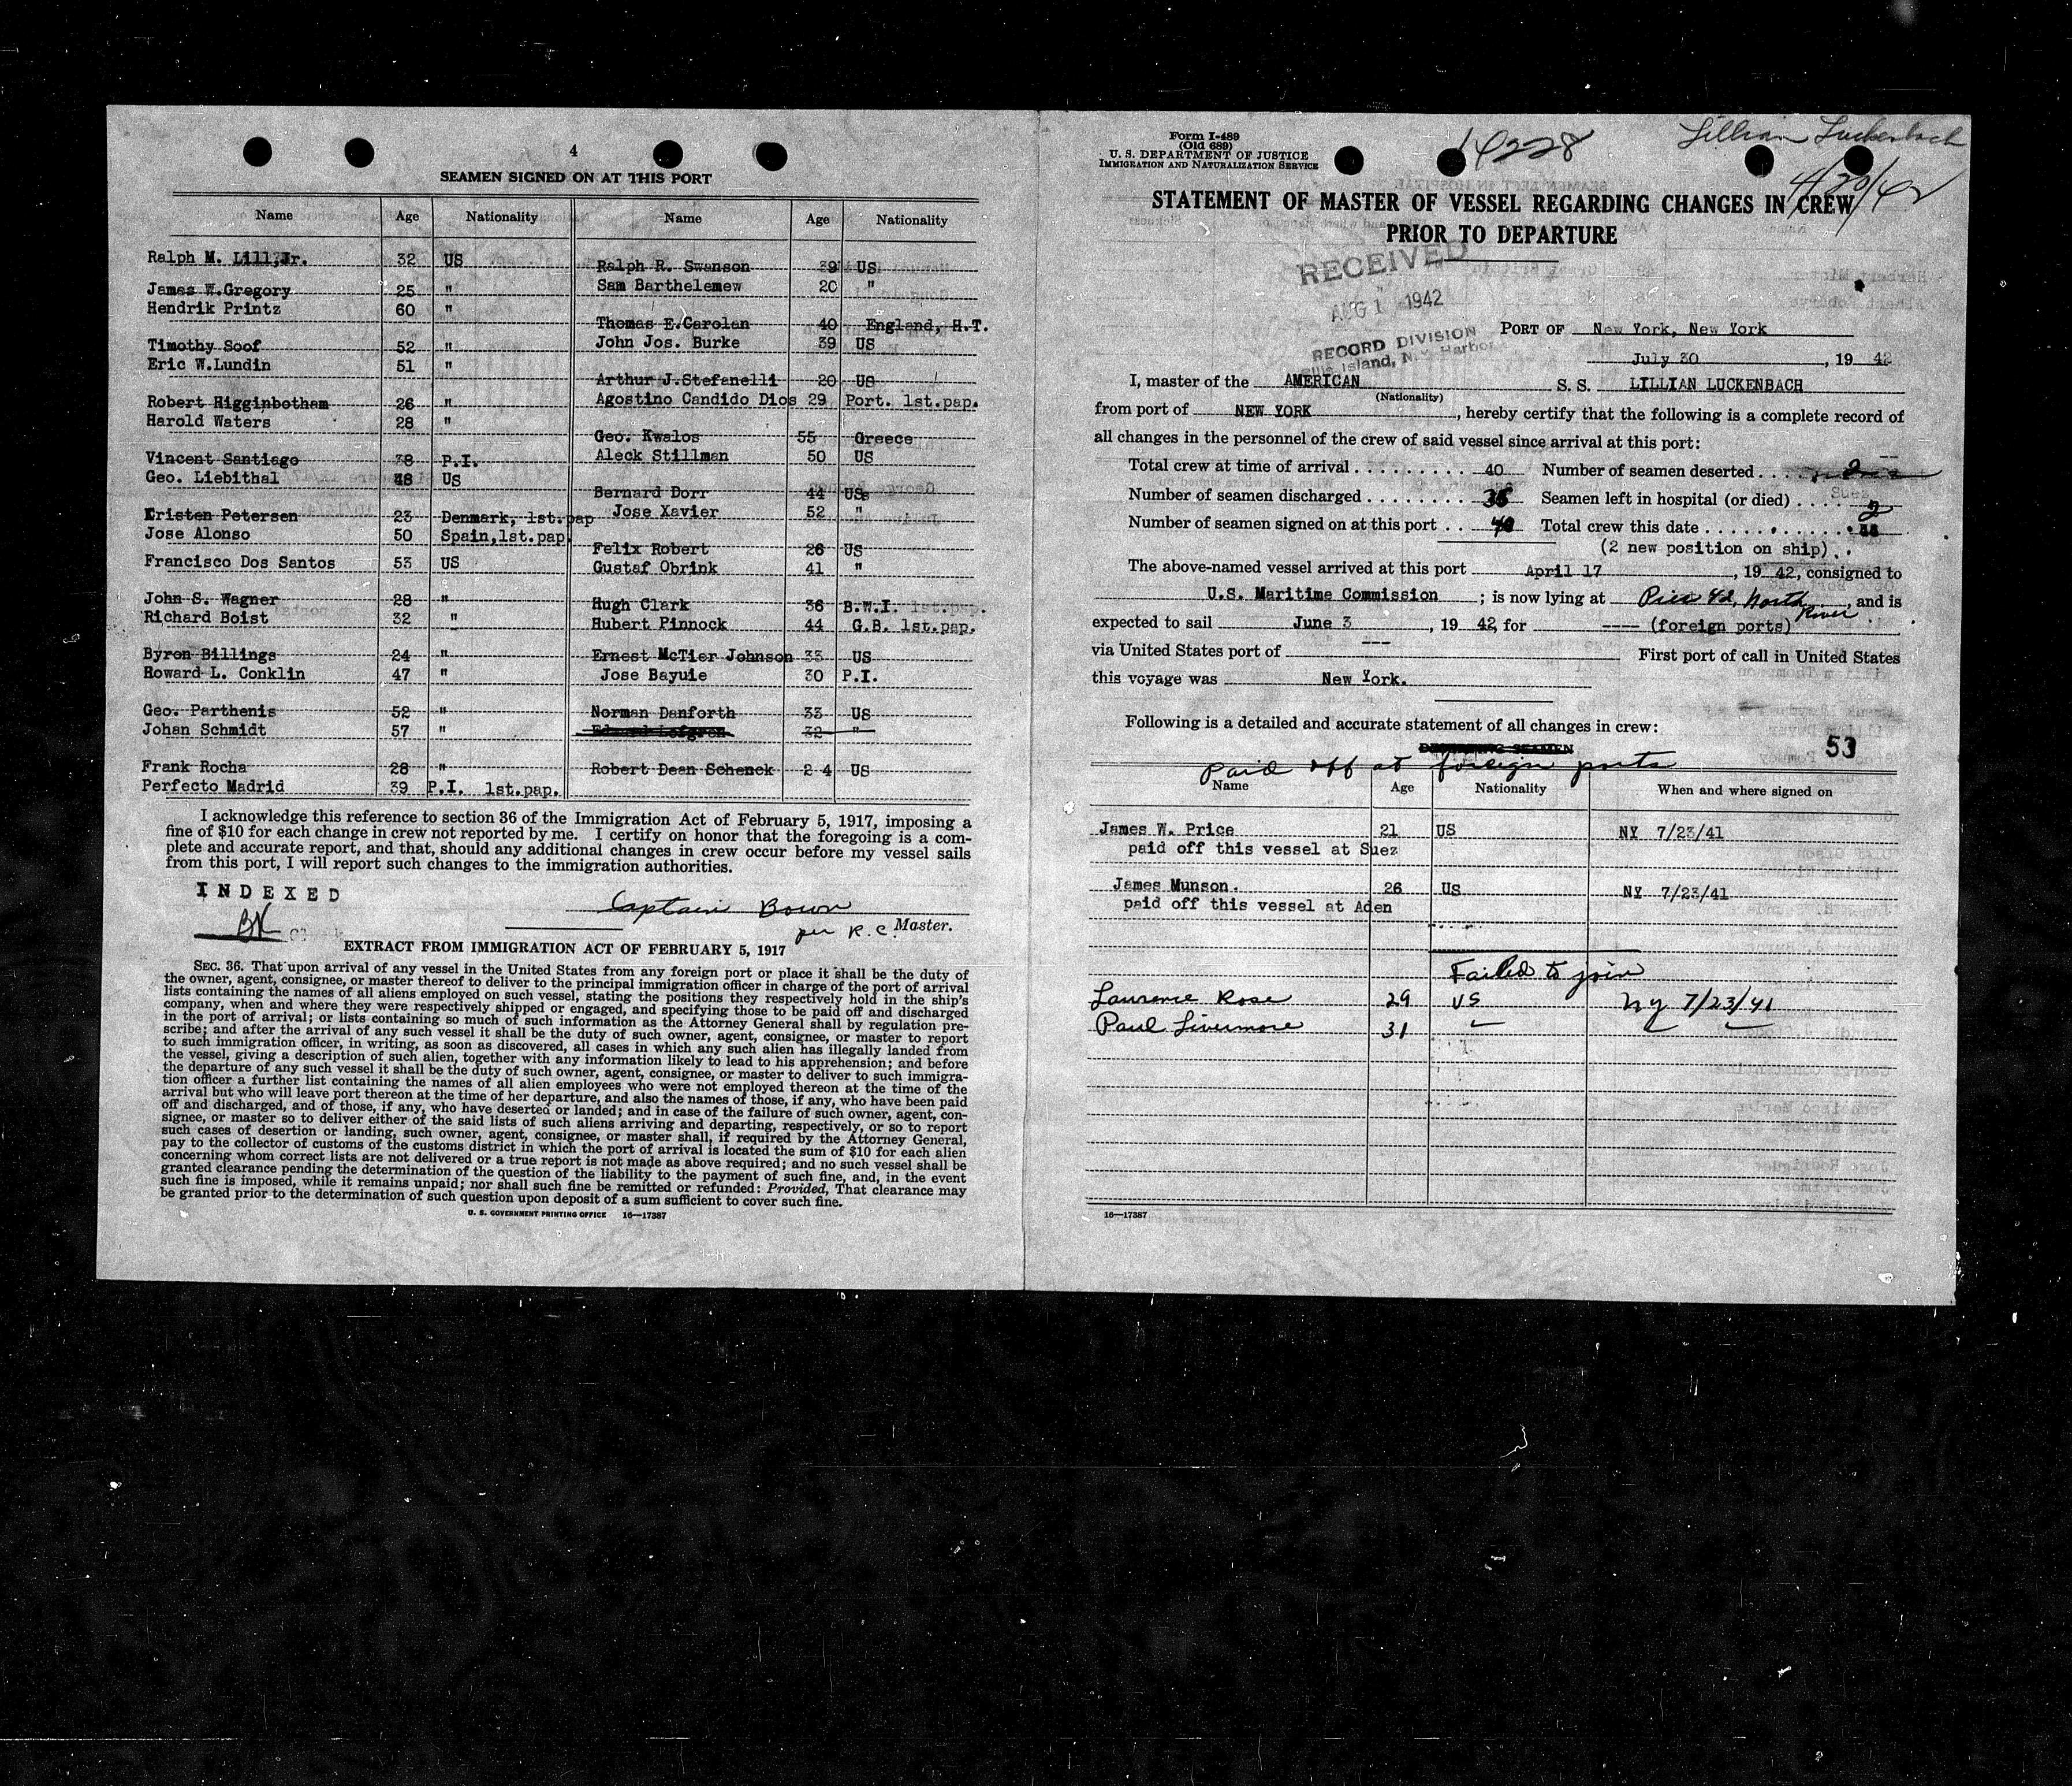 4
SEAMEN SIGNED ON AT THIS PORT
Name Age Nationality Name Age Nationality
Ralph M. Lill,Jr. 32 US
Ralph R. Swanson 39 US
James W.Gregory 25 "
Sam Barthelemew 20 "
Hendrik Printz 60 "
Thomas E.Carolan 40 England, H.T.
Timothy Soof 52 "
John Jos. Burke 39 US
Eric W.Lundin 51 "
Arthur J.Stefanelli 20 US
Robert Higginbotham 26 "
Agostino Candido Dios 29 Port. 1st.pap.
Harold Waters 28 "
Geo. Kwalos 55 Greece
Vincent Santiago 38 P.I.
Aleck Stillman 50 US
Geo. Liebithal 48 US
Bernard Dorr 44 USs
Kristen Petersen 23 Denmark, 1st.pap
Jose Xavier 52 "
Jose Alonso 50 Spain,1st.pap.
Felix Robert 26 US
Francisco Dos Santos 53 US
Gustaf Obrink 41 "
John S. Wagner 28 "
Hugh Clark 36 B.W.I. 1st.pap.
Richard Boist 32 "
Hubert Pinnock 44 G.B. 1st.pap.
Byron Billings 24 "
Ernest McTier Johnson 33 US
Roward L. Conklin 47 "
Jose Bayuie 30 P.I.
Geo. Parthenis 52 "
Norman Danforth 33 US
Johan Schmidt 57 "
Edward Lofgren 32 "
Frank Rocha 28 "
Robert Dean Schenck 24 US
Perfecto Madrid 39 P.I. 1st.pap.
I acknowledge this reference to section 36 of the Immigration Act of February 5, 1917, imposing a
fine of $10 for each change in crew not reported by me. I certify on honor that the foregoing is a com-
plete and accurate report, and that, should any additional changes in crew occur before my vessel sails
from this port, I will report such changes to the immigration authorities.
INDEXED
BK
Captain Bown
per R.C. Master.
EXTRACT FROM IMMIGRATION ACT OF FEBRUARY 5, 1917
SEC. 36. That upon arrival of any vessel in the United States from any foreign port or place it shall be the duty of
the owner, agent, consignee, or master thereof to deliver to the principal immigration officer in charge of the port of arrival
lists containing the names of all aliens employed on such vessel, stating the positions they respectively hold in the ship's
company, when and where they were respectively shipped or engaged, and specifying those to be paid off and discharged
in the port of arrival; or lists containing so much of such information as the Attorney General shall by regulation pre-
scribe; and after the arrival of any such vessel it shall be the duty of such owner, agent, consignee, or master to report
to such immigration officer, in writing, as soon as discovered, all cases in which any such alien has illegally landed from
the vessel, giving a description of such alien, together with any information likely to lead to his apprehension; and before
the departure of any such vessel it shall be the duty of such owner, agent, consignee, or master to deliver to such immigra-
tion officer a further list containing the names of all alien employees who were not employed thereon at the time of the
arrival but who will leave port thereon at the time of her departure, and also the names of those, if any, who have been paid
off and discharged, and of those, if any, who have deserted or landed; and in case of the failure of such owner, agent, con-
signee, or master so to deliver either of the said lists of such aliens arriving and departing, respectively, or so to report
such cases of desertion or landing, such owner, agent, consignee, or master shall, if required by the Attorney General,
pay to the collector of customs of the customs district in which the port of arrival is located the sum of $10 for each alien
concerning whom correct lists are not delivered or a true report is not made as above required; and no such vessel shall be
granted clearance pending the determination of the question of the liability to the payment of such fine, and, in the event
such fine is imposed, while it remains unpaid; nor shall such fine be remitted or refunded: Provided, That clearance may
be granted prior to the determination of such question upon deposit of a sum sufficient to cover such fine.
U. S. GOVERNMENT PRINTING OFFICE 16—17387
Form I-489
(Old 689)
U. S. DEPARTMENT OF JUSTICE
IMMIGRATION AND NATURALIZATION SERVICE
14228
Lillian Luckenbach
4/30/42
STATEMENT OF MASTER OF VESSEL REGARDING CHANGES IN CREW
PRIOR TO DEPARTURE
RECEIVED
AUG 1 1942
RECORD DIVISION
Ellis Island, N.Y. Harbor
PORT OF New York, New York
July 30, 19 42
I, master of the AMERICAN S. S. LILLIAN LUCKENBACH
(Nationality)
from port of NEW YORK, hereby certify that the following is a complete record of
all changes in the personnel of the crew of said vessel since arrival at this port:
Total crew at time of arrival 40 Number of seamen deserted 2
Number of seamen discharged 36 Seamen left in hospital (or died) 2
Number of seamen signed on at this port 40 Total crew this date
(2 new position on ship)
The above-named vessel arrived at this port April 17, 19 42, consigned to
U.S. Maritime Commission; is now lying at Pier 42, North River, and is
expected to sail June 3, 19 42, for ---- (foreign ports)
via United States port of --- First port of call in United States
this voyage was New York.
Following is a detailed and accurate statement of all changes in crew:
53
Paid off at foreign ports
Name Age Nationality When and where signed on
James W. Price 21 US NY 7/23/41
paid off this vessel at Suez
James Munson. 26 US NY 7/23/41
paid off this vessel at Aden
Failed to join
Laurence Rose 29 US NY 7/23/41
Paul Livermore 31
16—17387